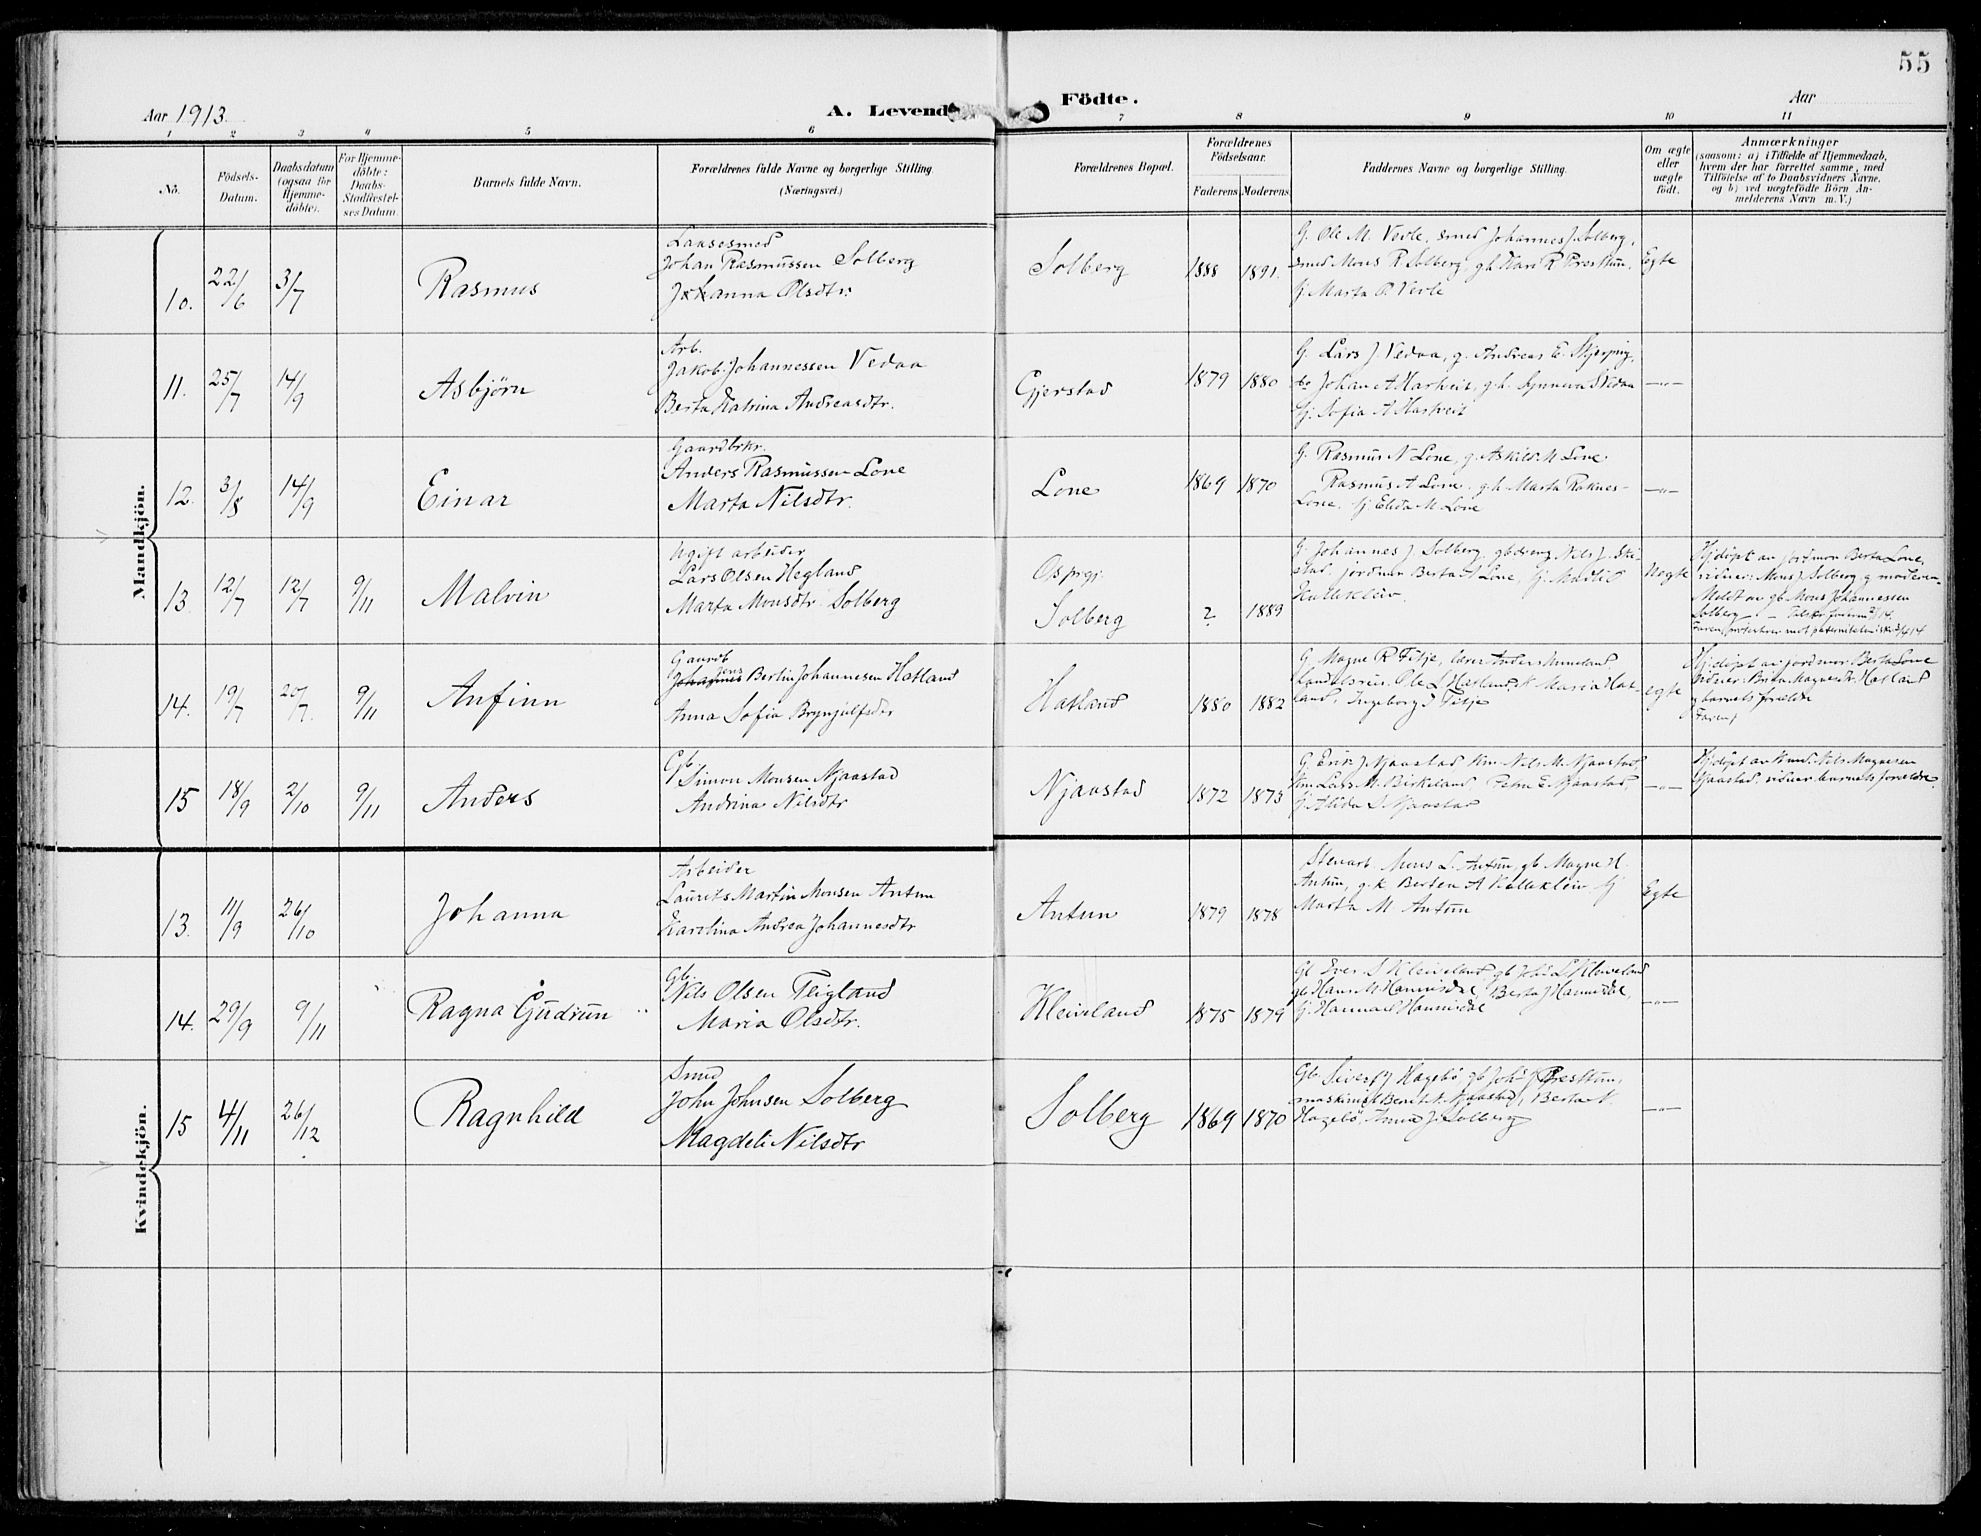 55
Aar 1913.
A. Levende Födte.
Aar
1 2 3 4 5 6 7 8 9 10 11
No.
Födsels-Datum.
Daabsdatum (ogsaa for Hjemme-döbte).
For Hjemme-döbte: Daabs-Stadfæstel-ses Datum.
Barnets fulde Navn.
Forældrenes fulde Navne og borgerlige Stilling (Næringsvei.)
Forældrenes Bopæl.
Forældrenes Födselsaar.
Faderens Moderens
Faddernes Navne og borgerlige Stilling.
Om ægte eller uægte födt.
Anmærkninger
(saasom: a) i Tilfælde af Hjemmedaab,
hvem der har forrettet samme, med
Tilföielse af to Daabsvidners Navne.
og b) ved uægtefödte Börn An-
melderens Navn m. V.)
Mandkjön.
10. 22/6 3/7
Rasmus
Laasesmed
Johan Rasmussen Solberg
Johanna Olsdtr.
Solberg
1888 1891.
G. Ole M. Vevle, smed Johannes J. Solberg,
smed Mons R Solberg, gh. Kari R Presttun.
Pj. Marta P. Vevle
Egte
11. 25/7 14/9
Asbjørn
Arb.
Jakob Johannessen Vedaa
Berta Katrina Andreasdtr.
Gjerstad
1879 1880
G. Lars J Vedaa, g. Andreas E.
do Johan A Hartveit, g.h. Synneva S Vedaa
Pj. Sofia A Hartveit
—"—
12. 3/8 14/9
Einar
Gaardbrkr.
Anders Rasmussen Lone
Marta Nilsdtr.
Lone
1869 1870
G. Rasmus N Lone, g. Askild M Lone
Rasmus A Lone, gh. Marta Raknes-
Lone, Pj. Elida M Lone
—"—
13. 12/7 12/7 9/11
Malvin
Ugift arbeider
Lars Olsen Hegland
Marta Monsdtr. Solberg
Os prgj.
Solberg
? 1889
G. Johannes J. Solberg, gbdreng Nils J.
jordmor Berta A Lone, Pj.
Hatleklev.
Uegte
Hj.døpt av jordmor Berta Lone,
vidner: Mons J Solberg g moderen.
Meldt av gb Mons Johannessen
Solberg
14. 19/7 20/7 9/11
Anfinn
Gaardb
Jens Berlin Johannesen Hatland
Anna Sofia Brynjulfsdtr
Hatland
1880 1882
G. Magne R Fitje, lærer Anders
Ole L Hatland, K Maria Hat-
land, Ingeborg J Fitje
egte
Hj.døpt av jordmor Berta Lone
Vidner: Brita Magnesdtr. Hatland
g barnets forældre
Faren)
15 18/9 2/10 9/11
Anders
Gb
Simon Monsen Njaastad
Andrina Nilsdtr
Njaastad
1872 1873
G. Erik J. Njaastad Km. Nils M. Njaastad
Km Lars M. Birkeland, Petra E. Njaastad,
Pj Alida L Njaastad
—"—
Hj.døpt av Km. Nils Magnesen
Njaastad. vidner barnets forældre.
Kvindekjön.
13. 11/9 26/10
Johanna
Arbeider
Laurits Martin Monsen Antun
Karolina Andrea Johannesdtr
Antun
1879 1878
Mons L. Antun, gb Magne H.
Antun, g.k. Berten A Hatleklev Pj
Marta M Antun
Egte
14. 29/9 9/11
Ragna Gudrun
Gb.
Nils Olsen Teigland
Maria Olsdtr.
Kleiveland
1875 1879
Gb Iver S Kleiveland gb L Kleveland
gb Hans M Hannisdal, Berta J Hannisdal,
Pj. Hanna Hannisdal
—"—
15 4/11 26/12
Ragnhild
Smed
John Johnsen Solberg
Magdeli Nilsdtr
Solberg
1869 1870
Gb. Sivert J Hagebø gb Joh. J Presttun,
Bent N. Njaastad, Berta N.
Hagebø, Anna J. Solberg
—"—